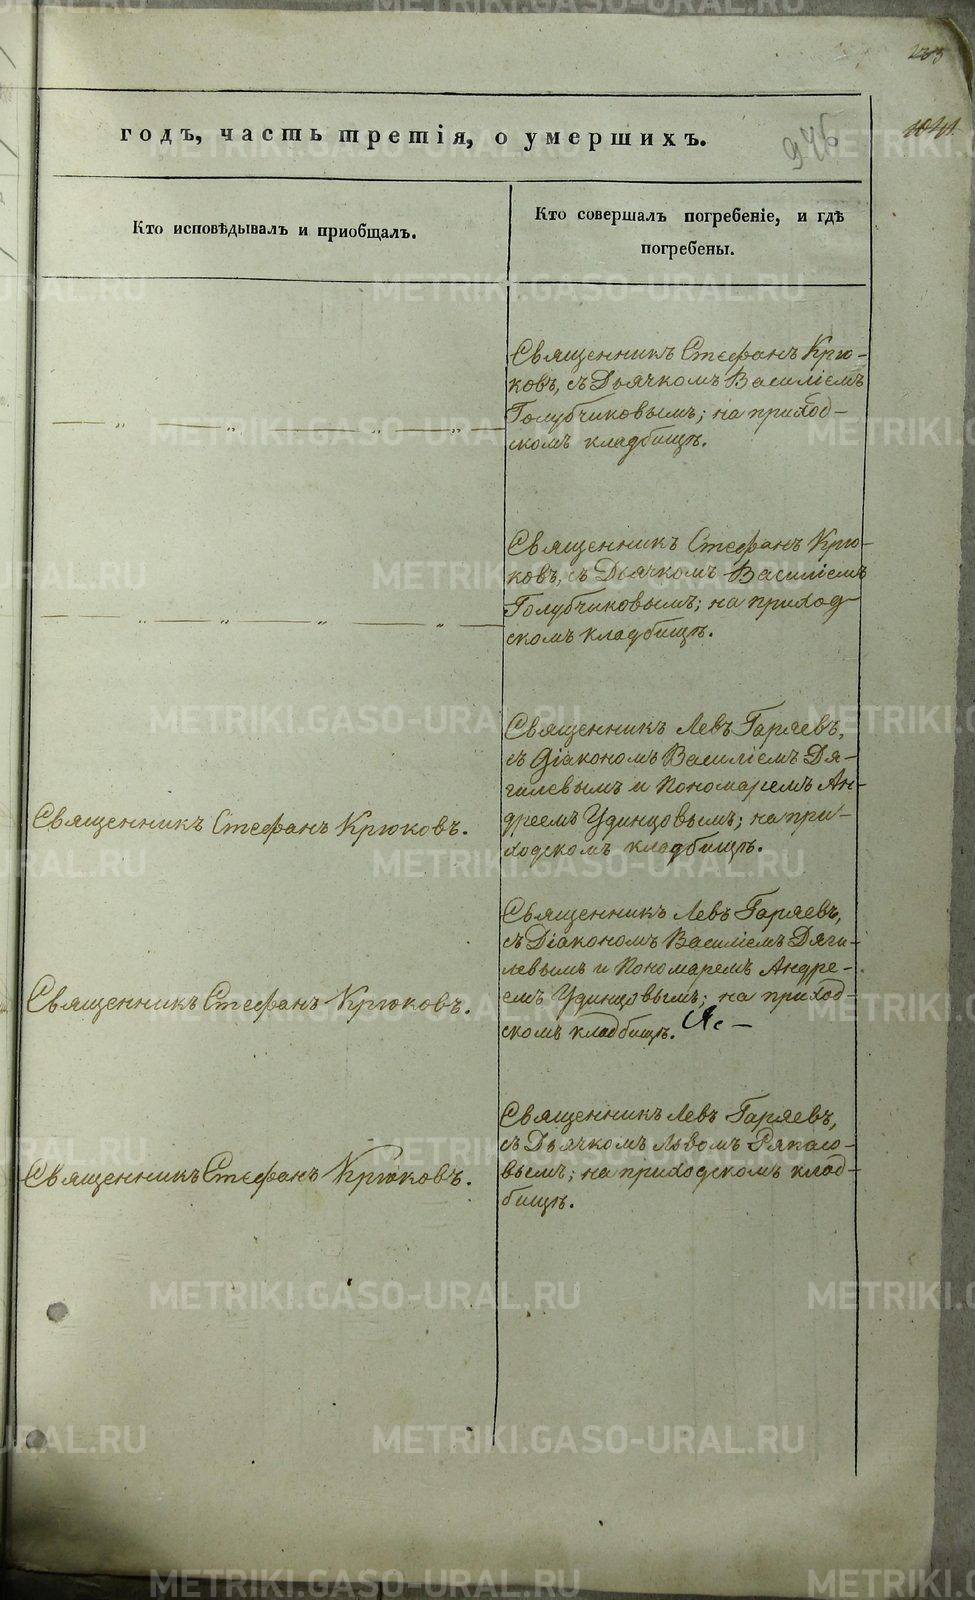 годъ, часть третія, о умершихъ.
946
Кто исповѣдывалъ и приобщалъ.
Кто совершалъ погребеніе, и гдѣ
погребены.
Священникъ Стефанъ Крю-
ковъ, съ Дьячкомъ Василіемъ
Голубчиковымъ; на приход-
скомъ кладбищѣ.
Священникъ Стефанъ Крю-
ковъ, съ Дьячкомъ Василіемъ
Голубчиковымъ; на приход-
скомъ кладбищѣ.
Священникъ Стефанъ Крюковъ.
Священникъ Левъ Гаряевъ,
съ Діакономъ Василіемъ Дя-
гилевымъ и Пономаремъ Ан-
дреемъ Удинцовымъ; на при-
ходскомъ кладбищѣ.
Священникъ Стефанъ Крюковъ.
Священникъ Левъ Гаряевъ,
съ Діакономъ Василіемъ Дяги-
левымъ и Пономаремъ Андре-
емъ Удинцовымъ; на приход-
скомъ кладбищѣ.
Священникъ Стефанъ Крюковъ.
Священникъ Левъ Гаряевъ,
съ Дьячкомъ Львомъ Ряпасо-
вымъ; на приходскомъ клад-
бищѣ.
METRIKI.GASO-URAL.RU